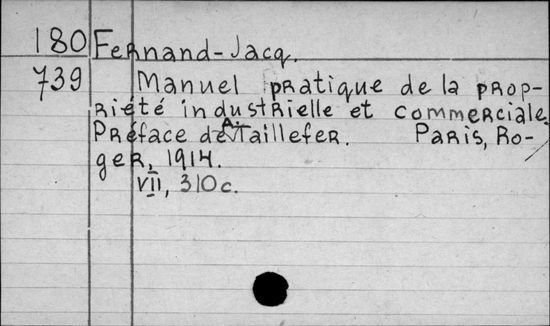 180 Fernand-Jacq.
739 Manuel pratique de la prop-
riété industrielle et commerciale.
Préface de A. Taillefer. Paris, Ro-
ger, 1914.
VII, 310 c.